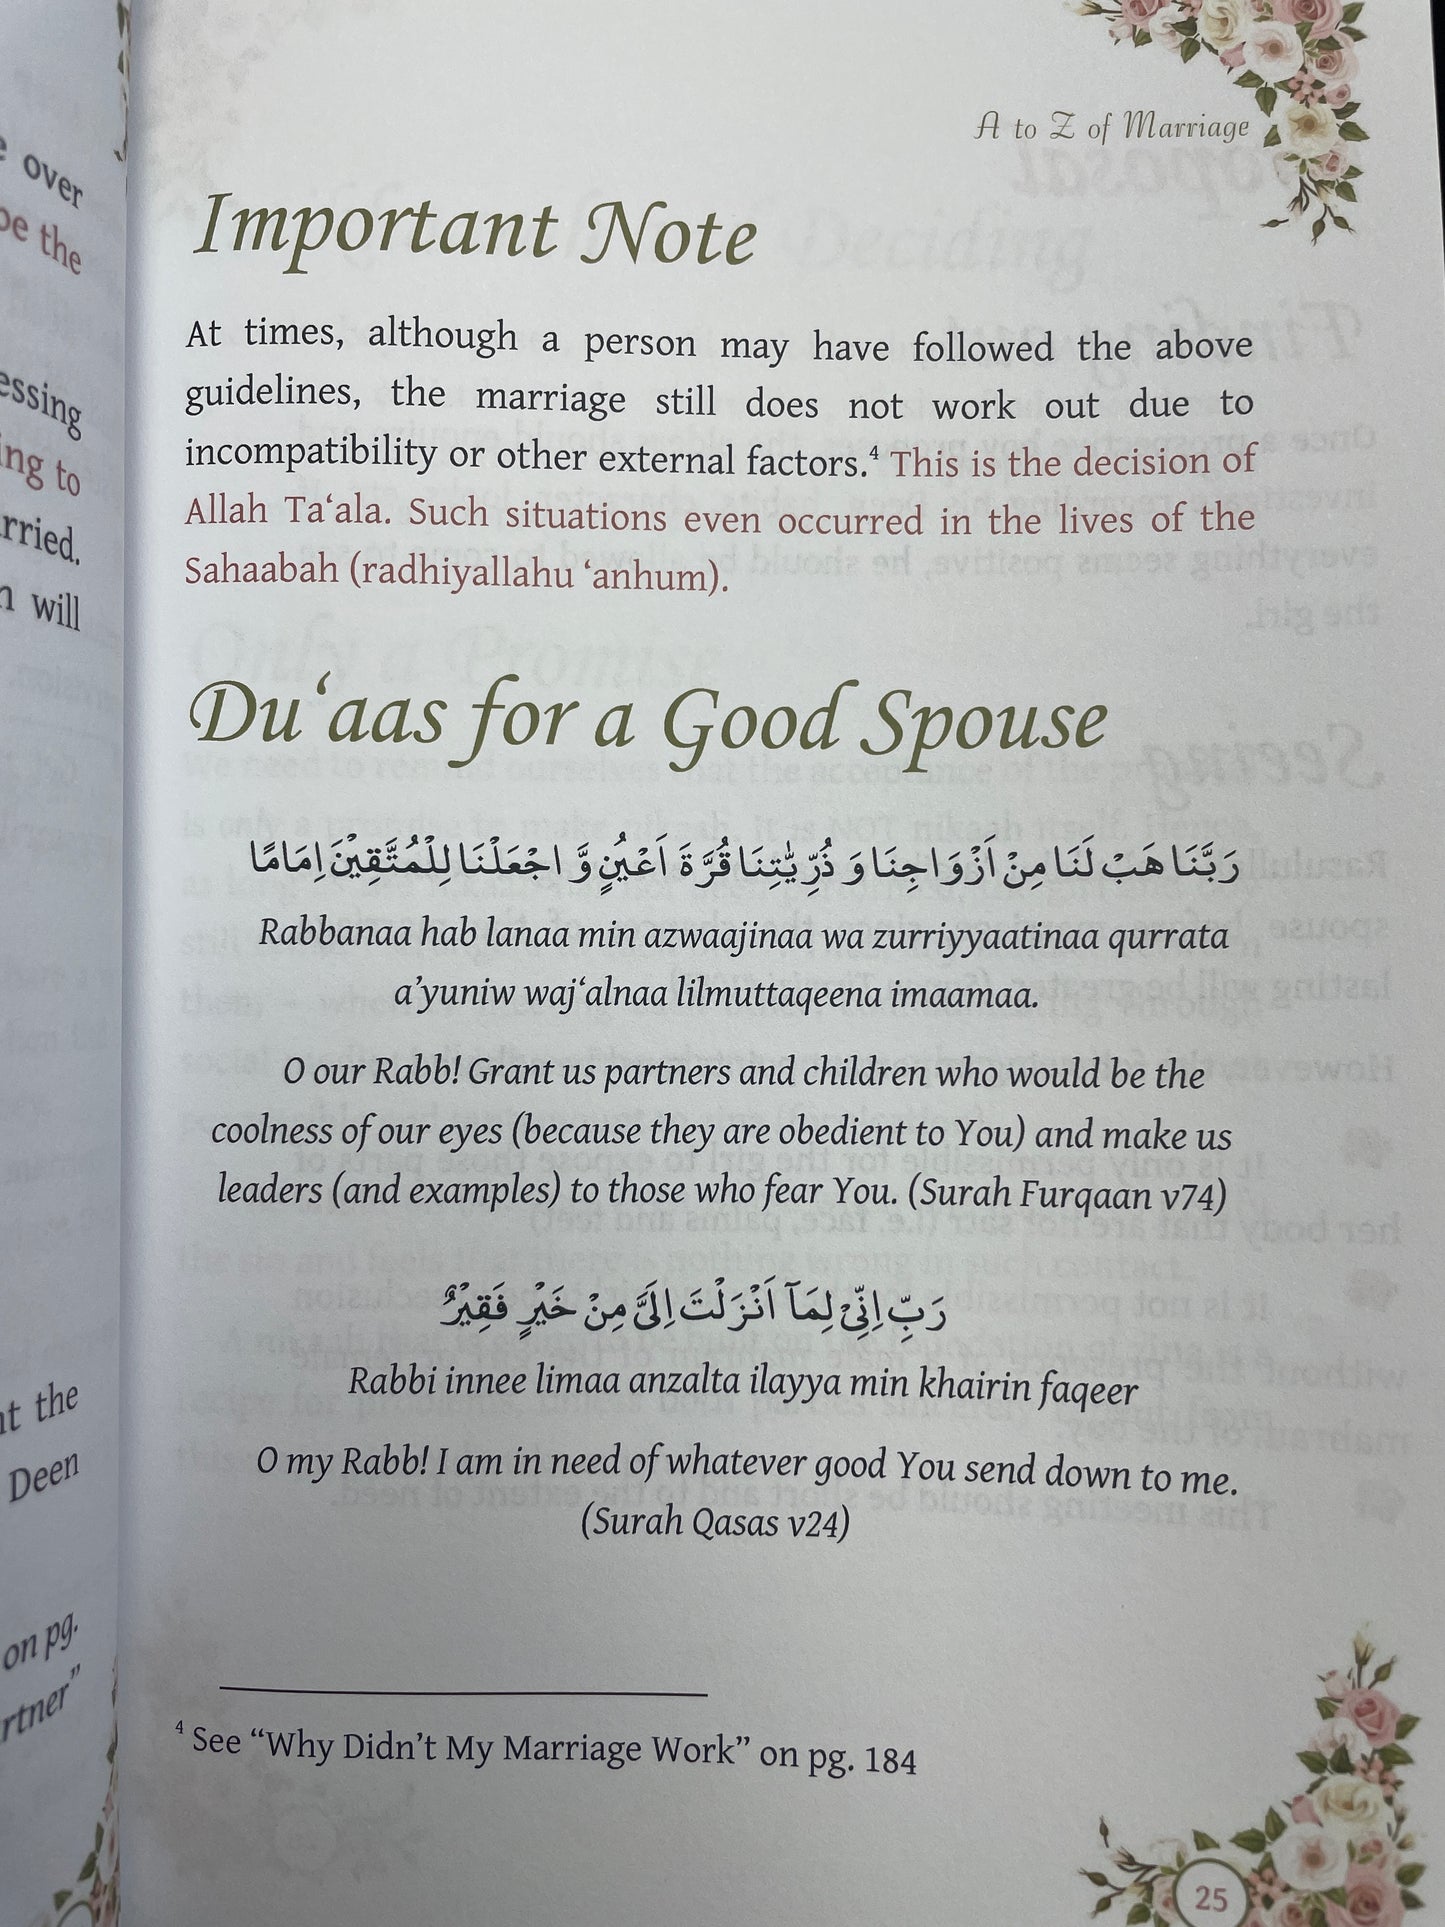 A to Z of Marriage
Important Note
At times, although a person may have followed the above
guidelines, the marriage still does not work out due to
incompatibility or other external factors.⁴ This is the decision of
Allah Ta‘ala. Such situations even occurred in the lives of the
Sahaabah (radhiyallahu ‘anhum).
Du‘aas for a Good Spouse
رَبَّنَا هَبْ لَنَا مِنْ اَزْوَاجِنَا وَ ذُرِّيّٰتِنَا قُرَّةَ اَعْيُنٍ وَّ اجْعَلْنَا لِلْمُتَّقِيْنَ اِمَامًا
Rabbanaa hab lanaa min azwaajinaa wa zurriyyaatinaa qurrata
a’yuniw waj‘alnaa lilmuttaqeena imaamaa.
O our Rabb! Grant us partners and children who would be the
coolness of our eyes (because they are obedient to You) and make us
leaders (and examples) to those who fear You. (Surah Furqaan v74)
رَبِّ اِنِّىْ لِمَآ اَنْزَلْتَ اِلَىَّ مِنْ خَيْرٍ فَقِيْرٌ
Rabbi innee limaa anzalta ilayya min khairin faqeer
O my Rabb! I am in need of whatever good You send down to me.
(Surah Qasas v24)
⁴ See “Why Didn’t My Marriage Work” on pg. 184
25
over
be the
ing to
will
the
Deen
on pg.